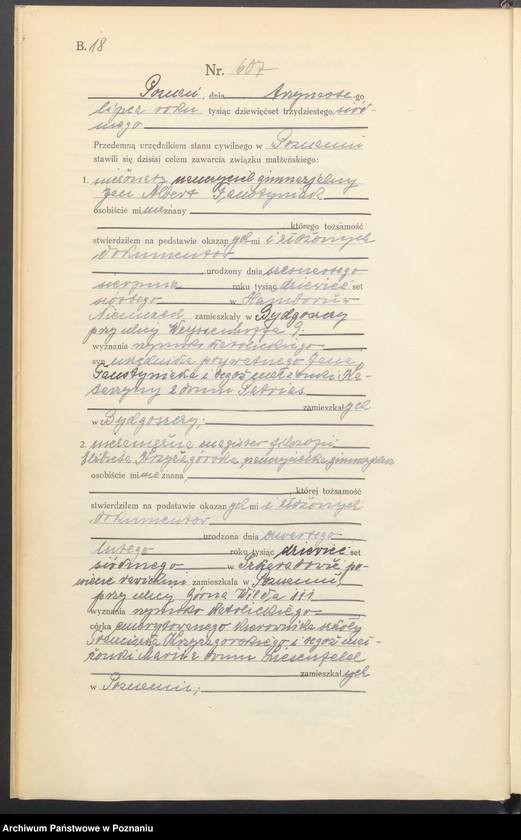 B. 18
Nr. 607
Poznań, dnia trzynaste-go
lipca roku tysiąc dziewięćset trzydziestego siód-
mego
Przedemną urzędnikiem stanu cywilnego w Poznaniu
stawili się dzisiaj celem zawarcia związku małżeńskiego:
1. nieżonaty nauczyciel gimnazjalny
Jan Albert Faustyniak
osobiście mi nieznany
którego tożsamość
stwierdziłem na podstawie okazanych mi i złożonych
dokumentów
urodzony dnia szesnastego
sierpnia roku tysiąc dziewięć set
siódmego w Hamborn w
Niemczech, zamieszkały w Bydgoszczy
przy ulicy 9.
wyznania rzymsko katolickiego
syn urzędnika prywatnego Jana
Faustyniaka i tegoż małżonki Ka-
tarzyny z domu
zamieszkałych
w Bydgoszczy;
2. niezamężna magister filozofii
Krzyżagórska, nauczycielka gimnazjalna
osobiście mi nieznana
której tożsamość
stwierdziłem na podstawie okazanych mi i złożonych
dokumentów
urodzona dnia czwartego
lutego roku tysiąc dziewięć set
siódmego w Szkaradowie po-
wiecie rawickim zamieszkała w Poznaniu
przy ulicy Górna Wilda 111
wyznania rzymsko katolickiego
córka emerytowanego kierownika szkoły
Franciszka Krzyżagórskiego i tegoż mał-
żonki Marii z domu
zamieszkałych
w Poznaniu;
Archiwum Państwowe w Poznaniu